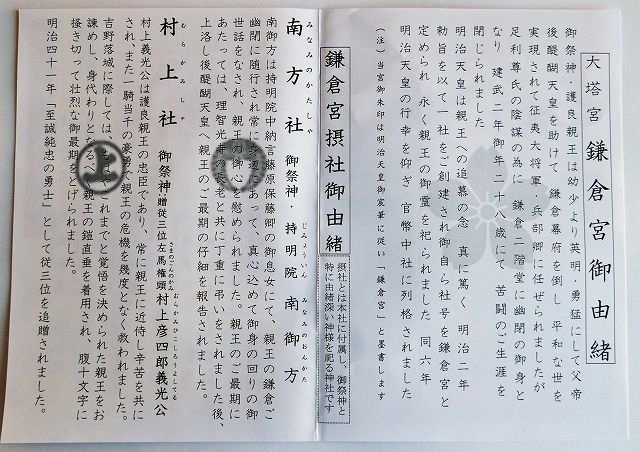 大塔宮 鎌倉宮御由緒
御祭神・護良親王は幼少より英明・勇猛にして父帝
後醍醐天皇を助けて 鎌倉幕府を倒し 平和な世を
実現されて征夷大将軍・兵部卿に任ぜられましたが
足利尊氏の陰謀の為に 鎌倉二階堂に幽閉の御身と
なり 建武二年御年二十八歳にて 苦闘のご生涯を
閉じられました
明治天皇は親王への追慕の念 真に篤く 明治二年
勅旨を以て一社をご創建され御自ら社号を鎌倉宮と
定められ 永く親王の御霊を祀られました 同六年
明治天皇の行幸を仰ぎ 官幣中社に列格されました
（注）当宮御朱印は明治天皇御宸筆に従い「鎌倉宮」と墨書します
鎌倉宮摂社御由緒
摂社とは本社に付属し、御祭神と
特に由緒深い神様を祀る神社です
みなみのかたしゃ じみょういん みなみのおんかた
南方社 御祭神・持明院 南御方
南御方は持明院中納言藤原保藤卿の御息女にて、親王の鎌倉ご
幽閉に随行され常に あって、真心込めて御身の回りの御
世話をなされ、親王の御心を慰められました。親王のご最期に
あたっては、理智光寺の長老と共に丁重に弔いをされました後、
上洛し後醍醐天皇へ親王のご最期の仔細を報告されました。
むらかみしゃ さまのごんのかみ むらかみひこしろうよしてる
村上社 御祭神・贈従三位左馬権頭村上彦四郎義光公
村上義光公は護良親王の忠臣であり、常に親王に近侍し辛苦を共に
され、また一騎当千の豪勇で親王の危機を幾度となく救われました。
吉野落城に際しては、もはやこれまでと覚悟を決められた親王をお
諫めし、身代わりとなる 親王の鎧直垂を着用され、腹十文字に
掻き切って壮烈な御最期をとげられました。
明治四十一年「至誠純忠の勇士」として従三位を追贈されました。